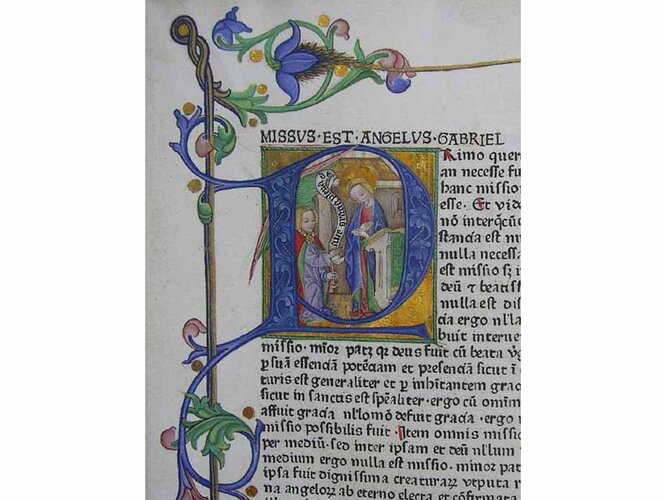 MISSVS·EST·ANGELVS·GABRIEL
PRimo quer
an necesse fu
hanc missio
esse. Et vide
nō
stancia est
nulla necessa
est missio sꝫ i
deū ⁊ beatiss
nulla est dis
cia ergo nl'la
buit interue
ave gracia plena
missio. mīor patꝫ qꝛ deus fuit cū beata v̄g
ꝑ suā essenciā potēciam et presenciā sicut i
turis est generaliter et ꝑ inhītantem grac
sicut in sanctis est spēaliter. ergo cū omīm
affuit gracia nl'lomō defuit gracia. ergo
missio possibilis fuit. Item omnis missio
per mediū. sed inter ipsam et deū nl'lum
medium ergo nulla est missio. minoꝛ pat
ipsa fuit dignissima creaturaꝝ vtputa r
na angeloꝝ ab eterno electa et cōfirmata